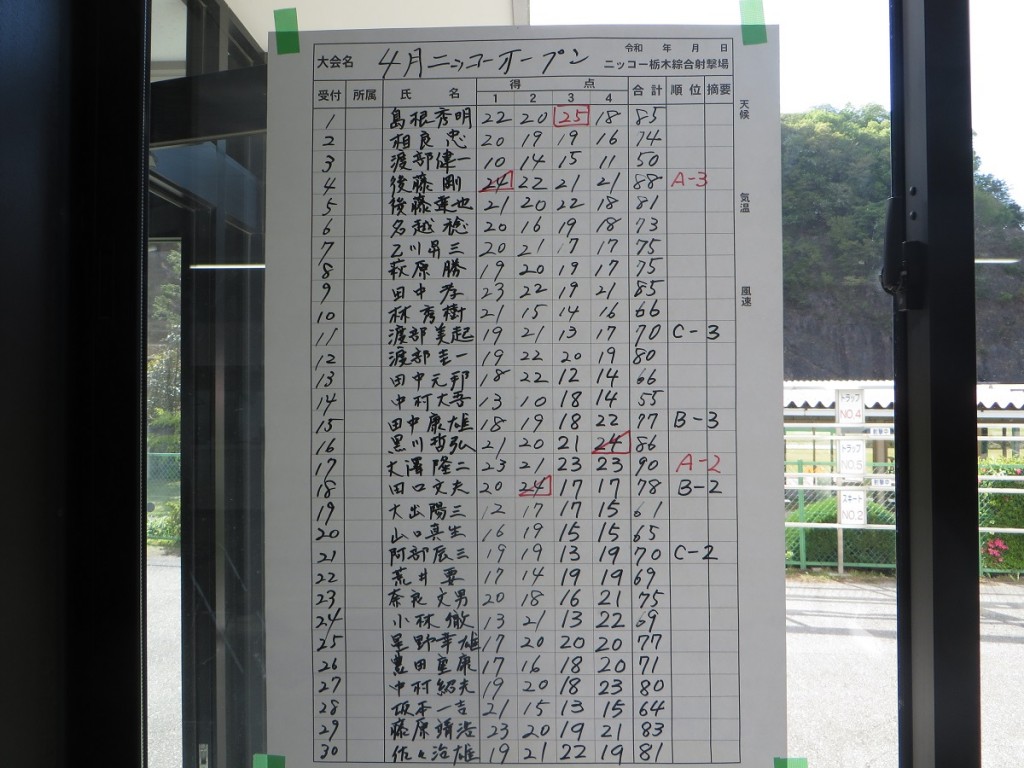 大会名 4月ニッコーオープン 令和 年 月 日
ニッコー栃木綜合射撃場
受付 所属 氏 名 得 点 合計 順位 摘要
1 2 3 4
1 島根秀明 22 20 25 18 85
2 相良忠 20 19 19 16 74
3 渡部健一 10 14 15 11 50
4 後藤剛 24 22 21 21 88 A-3
5 後藤達也 21 20 22 18 81
6 名越稔 20 16 19 18 73
7 乙川昇三 20 21 17 17 75
8 萩原勝 19 20 19 17 75
9 田中孝 23 22 19 21 85
10 林秀樹 21 15 14 16 66
11 渡部美起 19 21 13 17 70 C-3
12 渡部圭一 19 22 20 19 80
13 田中元邦 18 22 12 14 66
14 中村大吾 13 10 18 14 55
15 田中康雄 18 19 18 22 77 B-3
16 黒川哲弘 21 20 21 24 86
17 大澤隆二 23 21 23 23 90 A-2
18 田口文夫 20 24 17 17 78 B-2
19 大出陽三 12 17 17 15 61
20 山口真生 16 19 15 15 65
21 阿部辰三 19 19 13 19 70 C-2
22 荒井要 17 14 19 19 69
23 奈良文男 20 18 16 21 75
24 小林徹 13 21 13 22 69
25 星野幸雄 17 20 20 20 77
26 豊田重康 17 16 18 20 71
27 中村紹夫 19 20 18 23 80
28 坂本一吉 21 15 13 15 64
29 藤原靖浩 23 20 19 21 83
30 佐々治雄 19 21 22 19 81
天候
気温
風速
トラップ
NO.4
NO.5
スキート
NO.2